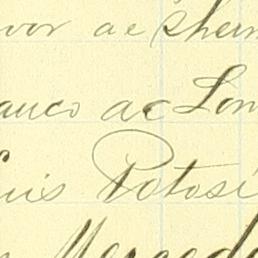 vor de Sherm
anco de Lon
uis Potosi
Merced